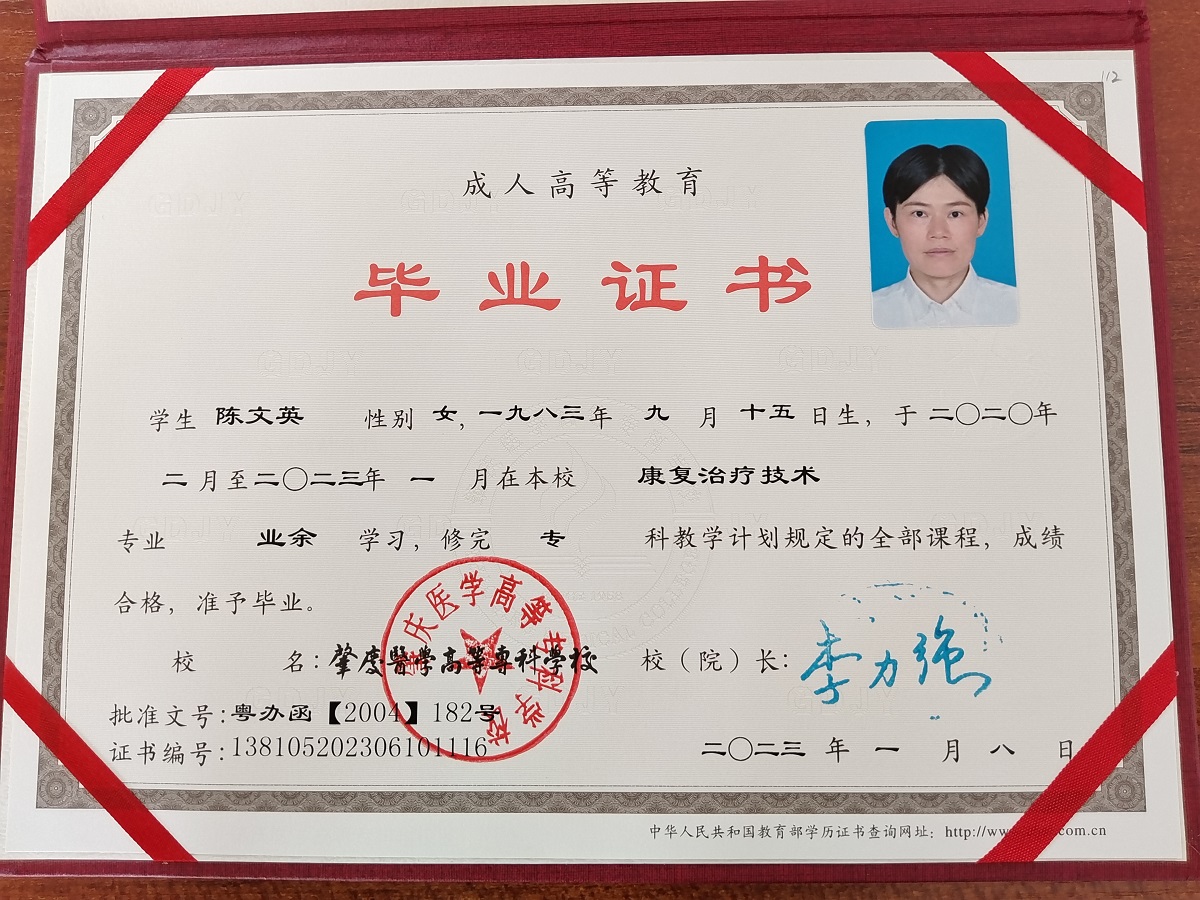 112
成人高等教育
毕业证书
学生 陈文英 性别 女，一九八三年 九 月 十五 日生，于 二〇二〇年
二 月至二〇二三年 一 月在本校 康复治疗技术
专业 业余 学习，修完 专 科教学计划规定的全部课程，成绩
合格，准予毕业。
校 名：肇慶醫學高等專科學校 校（院）长：李力强
批准文号：粤办函【2004】182号
证书编号：138105202306101116
二〇二三 年 一 月 八 日
肇庆医学高等专科学校
中华人民共和国教育部学历证书查询网址：http://ww .com.cn
GDJY GDJY GDJY
GDJY GDJY GDJY